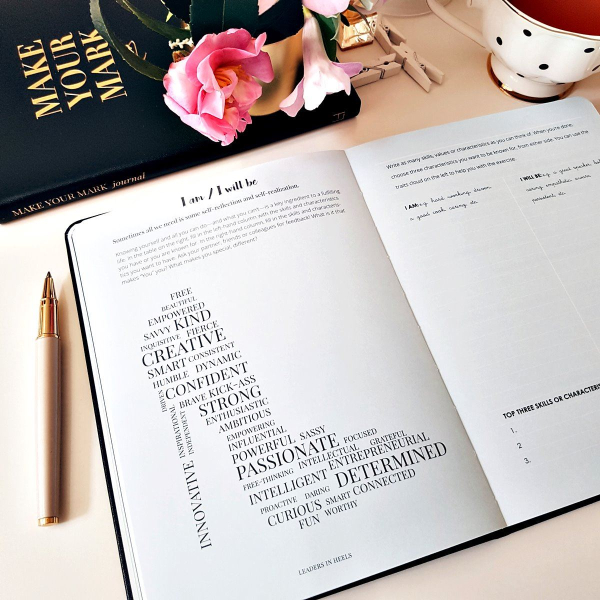 MAKE
YOUR
MARK
MAKE YOUR MARK journal
I am / I will be
Sometimes all we need is some self-reflection and self-realisation.
Knowing yourself and all you can do—and what you can't—is a key ingredient to a fulfilling
life. In the table on the right, fill in the left hand column with the skills and characteristics
you have or you are known for. In the right hand column, fill in the skills and characteris-
tics you want to have. Ask your partner, friends or colleagues for feedback! What is it that
makes "You" you? What makes you special, different?
FREE
BEAUTIFUL
EMPOWERED
SAVVY KIND
INQUISITIVE FIERCE
CREATIVE
SMART CONSISTENT
HUMBLE DYNAMIC
CONFIDENT
DRIVEN
BRAVE KICK-ASS
STRONG
INSPIRATIONAL
INDEPENDENT
ENTHUSIASTIC
AMBITIOUS
EMPOWERING
INFLUENTIAL
POWERFUL SASSY
PASSIONATE FOCUSED
FREE-THINKING INTELLECTUAL GRATEFUL
INTELLIGENT ENTREPRENEURIAL
INNOVATIVE
PROACTIVE DARING DETERMINED
CURIOUS SMART CONNECTED
FUN WORTHY
LEADERS IN HEELS
Write as many skills, values or characteristics as you can think of. When you're done,
choose three characteristics you want to be known for, from either side. You can use the
traits cloud on the left to help you with the exercise.
I AM e.g. hard working, home-
a good cook, caring, etc
I WILL BE e.g. a good teacher,
caring, empathetic,
persistent etc
TOP THREE SKILLS OR
1.
2
3.